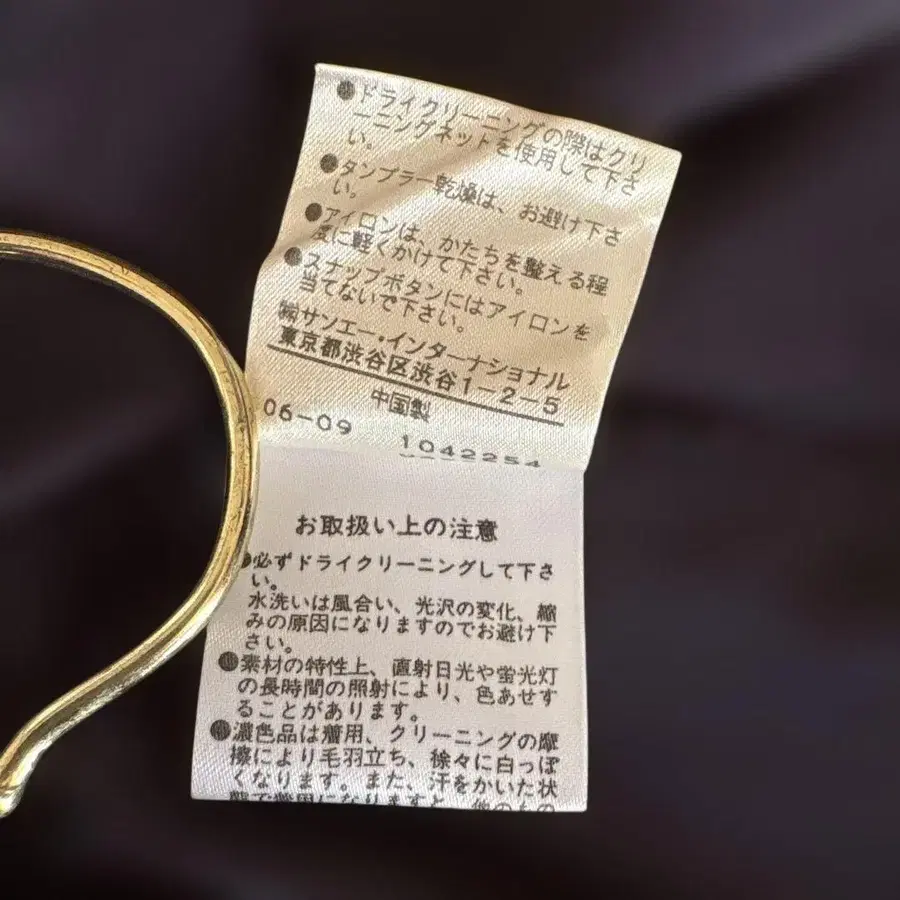 ●ドライクリーニングの際はクリ
ーニングネットを使用して下さ
い。
●タンブラー乾燥は、お避け下さ
い。
●アイロンは、かたちを整える程
度に軽くかけて下さい。
●スナップボタンにはアイロンを
当てないで下さい。
㈱サンエー・インターナショナル
東京都渋谷区渋谷1-2-5
中国製
06-09 1042254
お取扱い上の注意
●必ずドライクリーニングして下さ
い。
水洗いは風合い、光沢の変化、縮
みの原因になりますのでお避け下
さい。
●素材の特性上、直射日光や蛍光灯
の長時間の照射により、色あせす
ることがあります。
●濃色品は着用、クリーニングの摩
擦により毛羽立ち、徐々に白っぽ
くなります。また、汗をかいた状